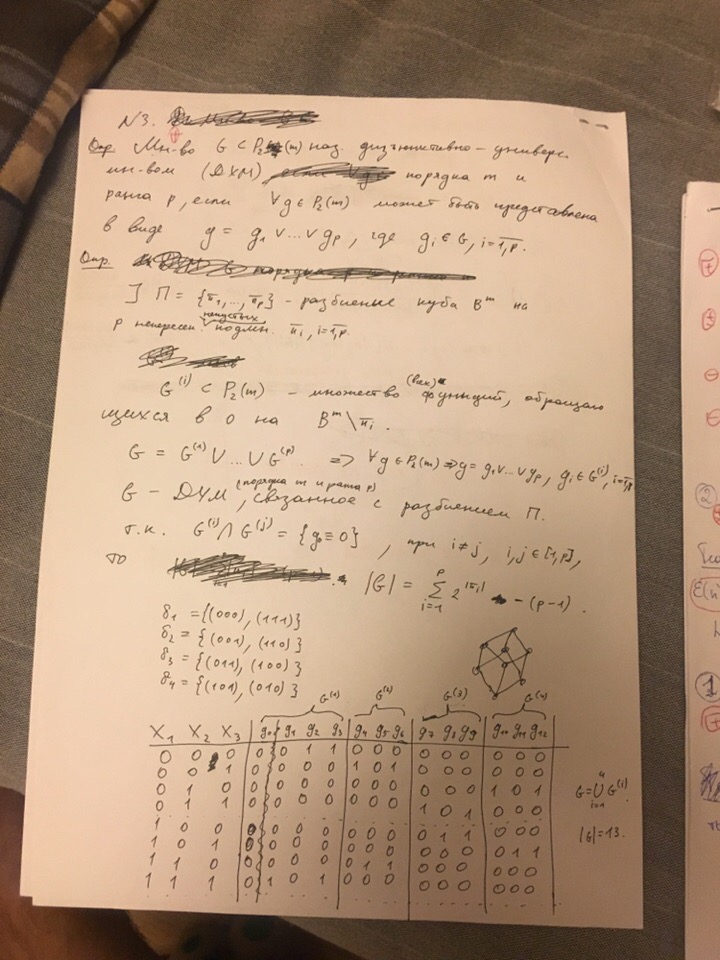 N3.
Опр. Мн-во G ⊂ P₂(m) наз. дизъюнктивно-универс.
мн-вом (ДУМ) порядка m и
ранга p, если ∀g ∈ P₂(m) может быть представлена
в виде g = g₁ ∨ ... ∨ gₚ, где gᵢ ∈ G, i = 1,p.
Опр.
] П = {π₁, ..., πₚ} - разбиение куба Bᵐ на
p непересек. непустых подмн. πᵢ, i = 1,p.
G⁽ⁱ⁾ ⊂ P₂(m) - множество (всех) функций, обращаю
щихся в 0 на Bᵐ \ πᵢ.
G = G⁽¹⁾ ∪ ... ∪ G⁽ᵖ⁾. => ∀g ∈ P₂(m) => g = g₁ ∨ ... ∨ gₚ, gᵢ ∈ G⁽ⁱ⁾, i = 1,p
G - ДУМ (порядка m и ранга p), связанное с разбиением П.
т.к. G⁽ⁱ⁾ ∩ G⁽ʲ⁾ = {g₀ ≡ 0}, при i ≠ j, i,j ∈ [1,p],
то |G| = Σ 2^|πᵢ| - (p-1).
p
i=1
δ₁ = {(000), (111)}
δ₂ = {(001), (110)}
δ₃ = {(011), (100)}
δ₄ = {(101), (010)}
G⁽¹⁾ G⁽²⁾ G⁽³⁾ G⁽⁴⁾
X₁ X₂ X₃ g₀ g₁ g₂ g₃ g₄ g₅ g₆ g₇ g₈ g₉ g₁₀ g₁₁ g₁₂
0 0 0 0 0 1 1 0 0 0 0 0 0 0 0 0
0 0 1 0 0 0 0 1 0 1 0 0 0 0 0 0
0 1 0 0 0 0 0 0 0 0 0 0 0 1 0 1
0 1 1 0 0 0 0 0 0 0 1 0 1 0 0 0
1 0 0 0 0 0 0 0 0 0 0 1 1 0 0 0
1 0 1 0 0 0 0 0 0 0 0 0 0 0 1 1
1 1 0 0 0 0 0 0 1 1 0 0 0 0 0 0
1 1 1 0 1 0 1 0 0 0 0 0 0 0 0 0
G = ∪ G⁽ⁱ⁾
4
i=1
|G| = 13.
②
①